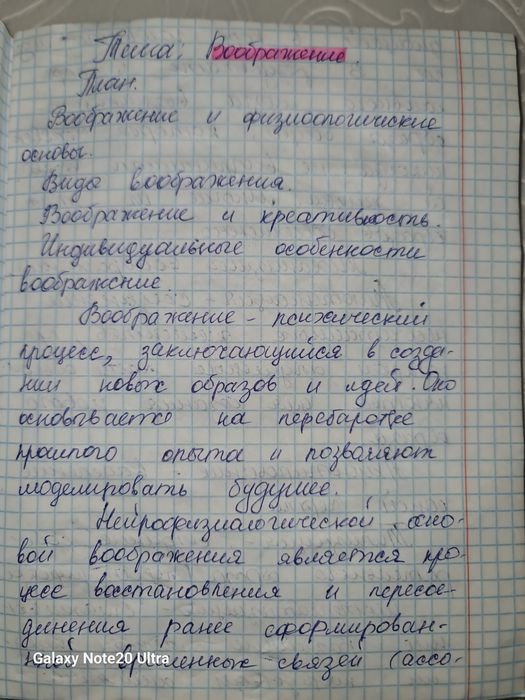 Тема: Воображение.
План.
Воображение и физиологические
основы.
Виды воображения.
Воображение и креативность.
Индивидуальные особенности
воображение.
Воображение - психический
процесс, заключающийся в созда-
нии новых образов и идей. Оно
основывается на перебаротке
прошлого опыта и позваляют
моделировать будущее.
Нейрофизиалогической осно-
вой воображения является про-
цесс восстановления и пересое-
динения ранее сформирован-
временных связей (ассо-
Galaxy Note20 Ultra